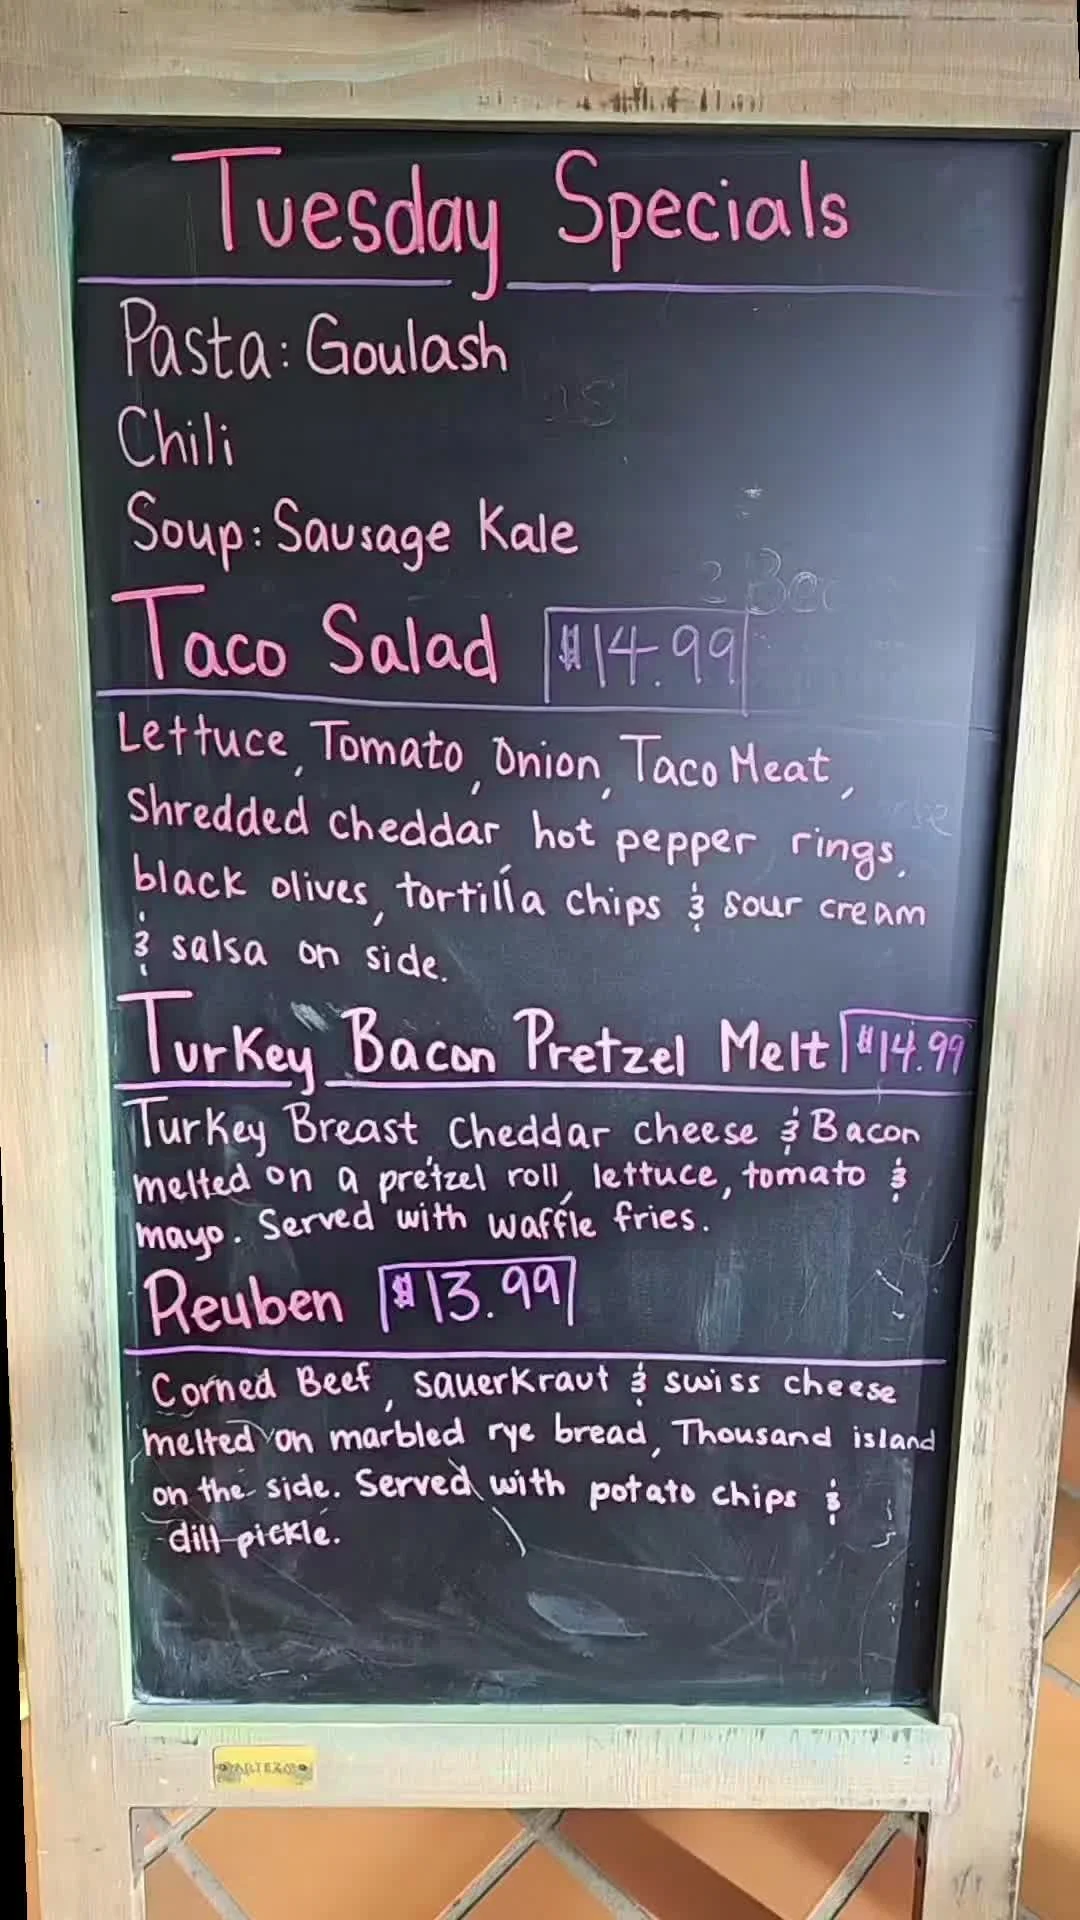 Tuesday Specials
Pasta: Goulash
Chili
Soup: Sausage Kale
Taco Salad $14.99
Lettuce, Tomato, Onion, Taco Meat,
Shredded cheddar hot pepper rings,
black olives, tortilla chips & sour cream
& salsa on side.
Turkey Bacon Pretzel Melt $14.99
Turkey Breast, Cheddar cheese & Bacon
melted on a pretzel roll, lettuce, tomato &
mayo. Served with waffle fries.
Reuben $13.99
Corned Beef, sauerkraut & swiss cheese
melted on marbled rye bread, Thousand island
on the side. Served with potato chips &
dill pickle.
ARTEZA